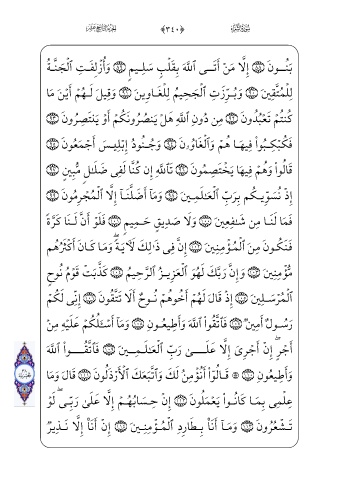 سُورَةُ الشُّعَرَاءِ ﴿٣٤٠﴾ الجزء التاسع عشر
بَنُونَ ۝ إِلَّا مَنْ أَتَى ٱللَّهَ بِقَلْبٍ سَلِيمٍ ۝ وَأُزْلِفَتِ ٱلْجَنَّةُ
لِلْمُتَّقِينَ ۝ وَبُرِّزَتِ ٱلْجَحِيمُ لِلْغَاوِينَ ۝ وَقِيلَ لَهُمْ أَيْنَ مَا
كُنتُمْ تَعْبُدُونَ ۝ مِن دُونِ ٱللَّهِ هَلْ يَنصُرُونَكُمْ أَوْ يَنتَصِرُونَ ۝
فَكُبْكِبُوا۟ فِيهَا هُمْ وَٱلْغَاوُۥنَ ۝ وَجُنُودُ إِبْلِيسَ أَجْمَعُونَ ۝
قَالُوا۟ وَهُمْ فِيهَا يَخْتَصِمُونَ ۝ تَٱللَّهِ إِن كُنَّا لَفِى ضَلَٰلٍ مُّبِينٍ ۝
إِذْ نُسَوِّيكُم بِرَبِّ ٱلْعَٰلَمِينَ ۝ وَمَآ أَضَلَّنَآ إِلَّا ٱلْمُجْرِمُونَ ۝
فَمَا لَنَا مِن شَٰفِعِينَ ۝ وَلَا صَدِيقٍ حَمِيمٍ ۝ فَلَوْ أَنَّ لَنَا كَرَّةً
فَنَكُونَ مِنَ ٱلْمُؤْمِنِينَ ۝ إِنَّ فِى ذَٰلِكَ لَءَايَةً ۖ وَمَا كَانَ أَكْثَرُهُم
مُّؤْمِنِينَ ۝ وَإِنَّ رَبَّكَ لَهُوَ ٱلْعَزِيزُ ٱلرَّحِيمُ ۝ كَذَّبَتْ قَوْمُ نُوحٍ
ٱلْمُرْسَلِينَ ۝ إِذْ قَالَ لَهُمْ أَخُوهُمْ نُوحٌ أَلَا تَتَّقُونَ ۝ إِنِّى لَكُمْ
رَسُولٌ أَمِينٌ ۝ فَٱتَّقُوا۟ ٱللَّهَ وَأَطِيعُونِ ۝ وَمَآ أَسْـَٔلُكُمْ عَلَيْهِ مِنْ
أَجْرٍ ۖ إِنْ أَجْرِىَ إِلَّا عَلَىٰ رَبِّ ٱلْعَٰلَمِينَ ۝ فَٱتَّقُوا۟ ٱللَّهَ
وَأَطِيعُونِ ۝ ۞ قَالُوٓا۟ أَنُؤْمِنُ لَكَ وَٱتَّبَعَكَ ٱلْأَرْذَلُونَ ۝ قَالَ وَمَا
عِلْمِى بِمَا كَانُوا۟ يَعْمَلُونَ ۝ إِنْ حِسَابُهُمْ إِلَّا عَلَىٰ رَبِّى ۖ لَوْ
تَشْعُرُونَ ۝ وَمَآ أَنَا۠ بِطَارِدِ ٱلْمُؤْمِنِينَ ۝ إِنْ أَنَا۠ إِلَّا نَذِيرٌ